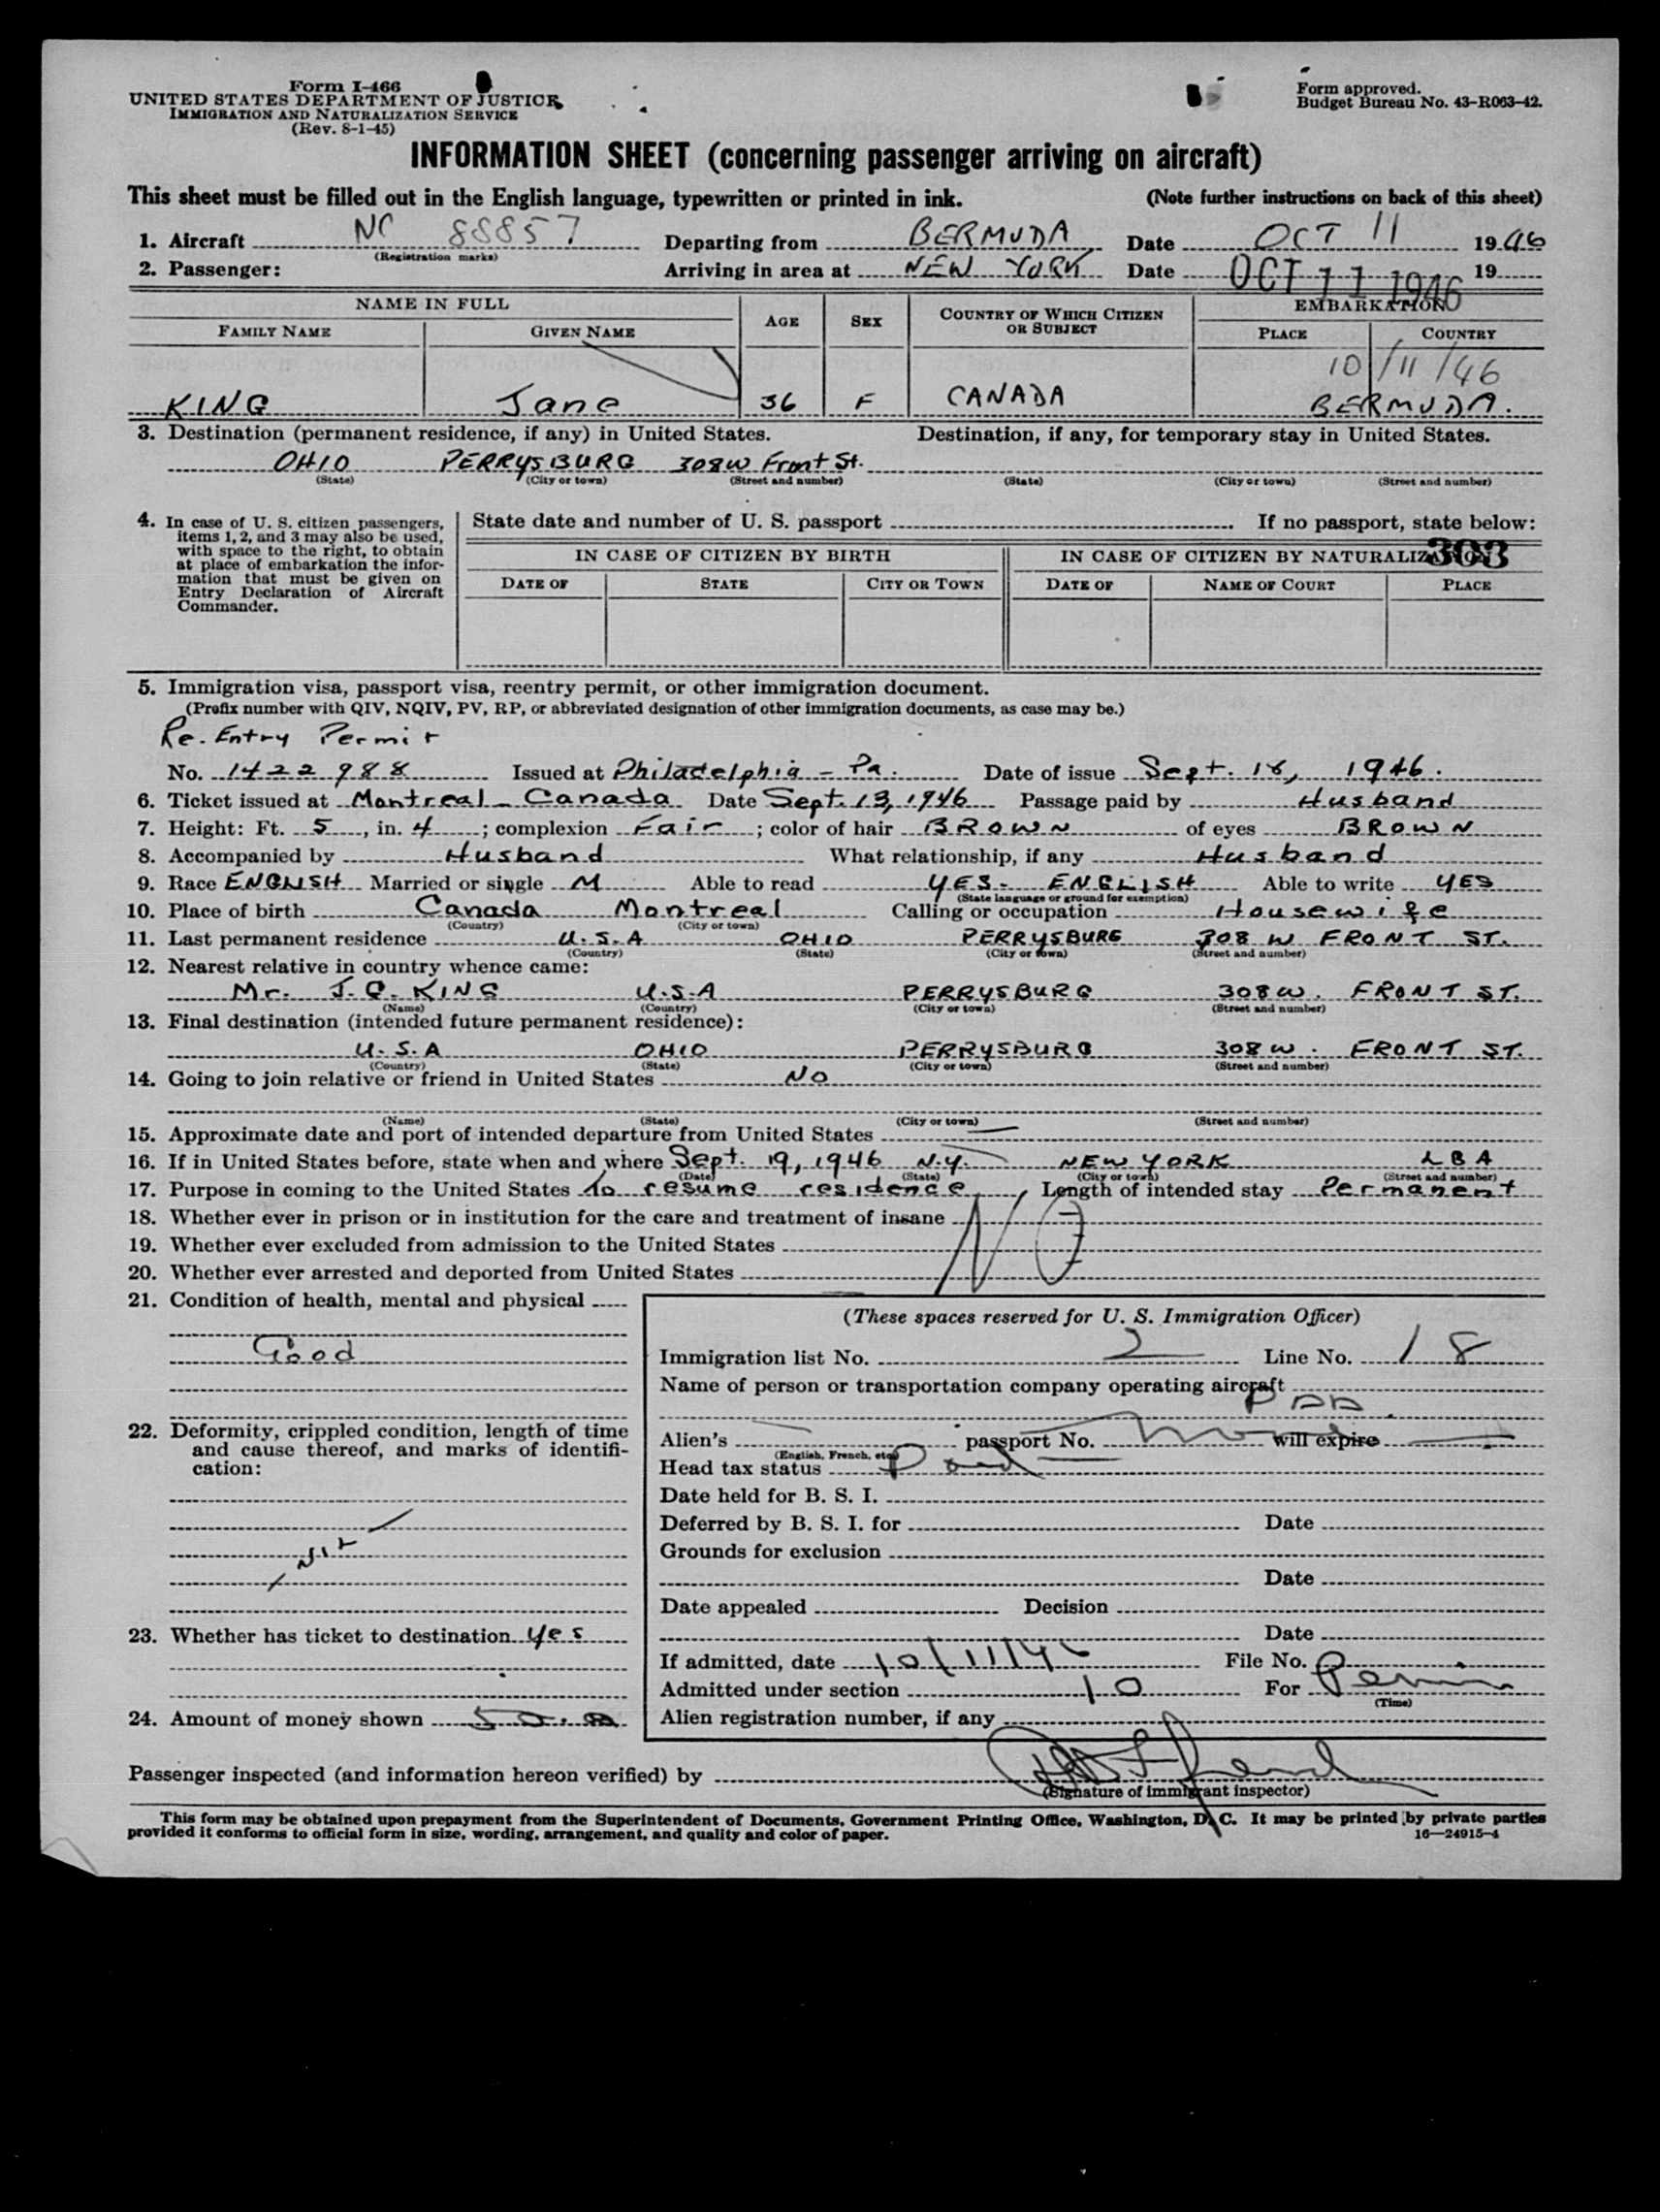 Form I-466
UNITED STATES DEPARTMENT OF JUSTICE
IMMIGRATION AND NATURALIZATION SERVICE
(Rev. 8-1-45)
Form approved.
Budget Bureau No. 43-R063-42.
INFORMATION SHEET (concerning passenger arriving on aircraft)
This sheet must be filled out in the English language, typewritten or printed in ink. (Note further instructions on back of this sheet)
1. Aircraft NC 88857 Departing from BERMUDA Date OCT 11 1946
(Registration marks)
2. Passenger: Arriving in area at NEW YORK Date OCT 11 1946 19
NAME IN FULL AGE SEX COUNTRY OF WHICH CITIZEN OR SUBJECT EMBARKATION
FAMILY NAME GIVEN NAME PLACE COUNTRY
10/11/46
KING Jane 36 F CANADA BERMUDA.
3. Destination (permanent residence, if any) in United States. Destination, if any, for temporary stay in United States.
OHIO PERRYSBURG 308W Front St.
(State) (City or town) (Street and number) (State) (City or town) (Street and number)
4. In case of U. S. citizen passengers, items 1, 2, and 3 may also be used, with space to the right, to obtain at place of embarkation the information that must be given on Entry Declaration of Aircraft Commander.
State date and number of U. S. passport If no passport, state below:
303
IN CASE OF CITIZEN BY BIRTH IN CASE OF CITIZEN BY NATURALIZATION
DATE OF STATE CITY OR TOWN DATE OF NAME OF COURT PLACE
5. Immigration visa, passport visa, reentry permit, or other immigration document.
(Prefix number with QIV, NQIV, PV, RP, or abbreviated designation of other immigration documents, as case may be.)
Re-Entry Permit
No. 1422988 Issued at Philadelphia - Pa. Date of issue Sept. 18, 1946.
6. Ticket issued at Montreal - Canada Date Sept. 13, 1946 Passage paid by Husband
7. Height: Ft. 5, in. 4; complexion Fair; color of hair BROWN of eyes BROWN
8. Accompanied by Husband What relationship, if any Husband
9. Race ENGLISH Married or single M Able to read YES - ENGLISH Able to write YES
(State language or ground for exemption)
10. Place of birth Canada Montreal Calling or occupation Housewife
(Country) (City or town)
11. Last permanent residence U.S.A OHIO PERRYSBURG 308 W FRONT ST.
(Country) (State) (City or town) (Street and number)
12. Nearest relative in country whence came:
Mr. J. C. KING U.S.A PERRYSBURG 308 W. FRONT ST.
(Name) (Country) (City or town) (Street and number)
13. Final destination (intended future permanent residence):
U.S.A OHIO PERRYSBURG 308 W. FRONT ST.
(Country) (State) (City or town) (Street and number)
14. Going to join relative or friend in United States NO
(Name) (State) (City or town) (Street and number)
15. Approximate date and port of intended departure from United States —
16. If in United States before, state when and where Sept. 19, 1946 N.Y. NEW YORK LBA
(Date) (State) (City or town) (Street and number)
17. Purpose in coming to the United States to resume residence Length of intended stay Permanent
18. Whether ever in prison or in institution for the care and treatment of insane
19. Whether ever excluded from admission to the United States NO
20. Whether ever arrested and deported from United States
21. Condition of health, mental and physical
Good
22. Deformity, crippled condition, length of time and cause thereof, and marks of identification:
NIL
23. Whether has ticket to destination Yes
24. Amount of money shown 50.00
(These spaces reserved for U. S. Immigration Officer)
Immigration list No. 2 Line No. 18
Name of person or transportation company operating aircraft
PAA
Alien's passport No. will expire
(English, French, etc.)
Head tax status Paid
Date held for B. S. I.
Deferred by B. S. I. for Date
Grounds for exclusion
Date
Date appealed Decision
Date
If admitted, date 10/11/46 File No.
Admitted under section 10 For Perm
(Time)
Alien registration number, if any
Passenger inspected (and information hereon verified) by
(Signature of immigrant inspector)
This form may be obtained upon prepayment from the Superintendent of Documents, Government Printing Office, Washington, D. C. It may be printed by private parties
provided it conforms to official form in size, wording, arrangement, and quality and color of paper. 16—24915-4